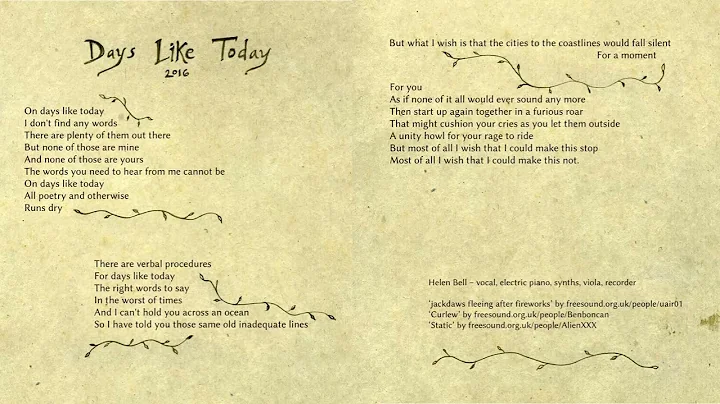 Days Like Today
2016
On days like today
I don't find any words
There are plenty of them out there
But none of those are mine
And none of those are yours
The words you need to hear from me cannot be
On days like today
All poetry and otherwise
Runs dry
There are verbal procedures
For days like today
The right words to say
In the worst of times
And I can't hold you across an ocean
So I have told you those same old inadequate lines
But what I wish is that the cities to the coastlines would fall silent
For a moment
For you
As if none of it all would ever sound any more
Then start up again together in a furious roar
That might cushion your cries as you let them outside
A unity howl for your rage to ride
But most of all I wish that I could make this stop
Most of all I wish that I could make this not.
Helen Bell – vocal, electric piano, synths, viola, recorder
'jackdaws fleeing after fireworks' by freesound.org.uk/people/uair01
'Curlew' by freesound.org.uk/people/Benboncan
'Static' by freesound.org.uk/people/AlienXXX